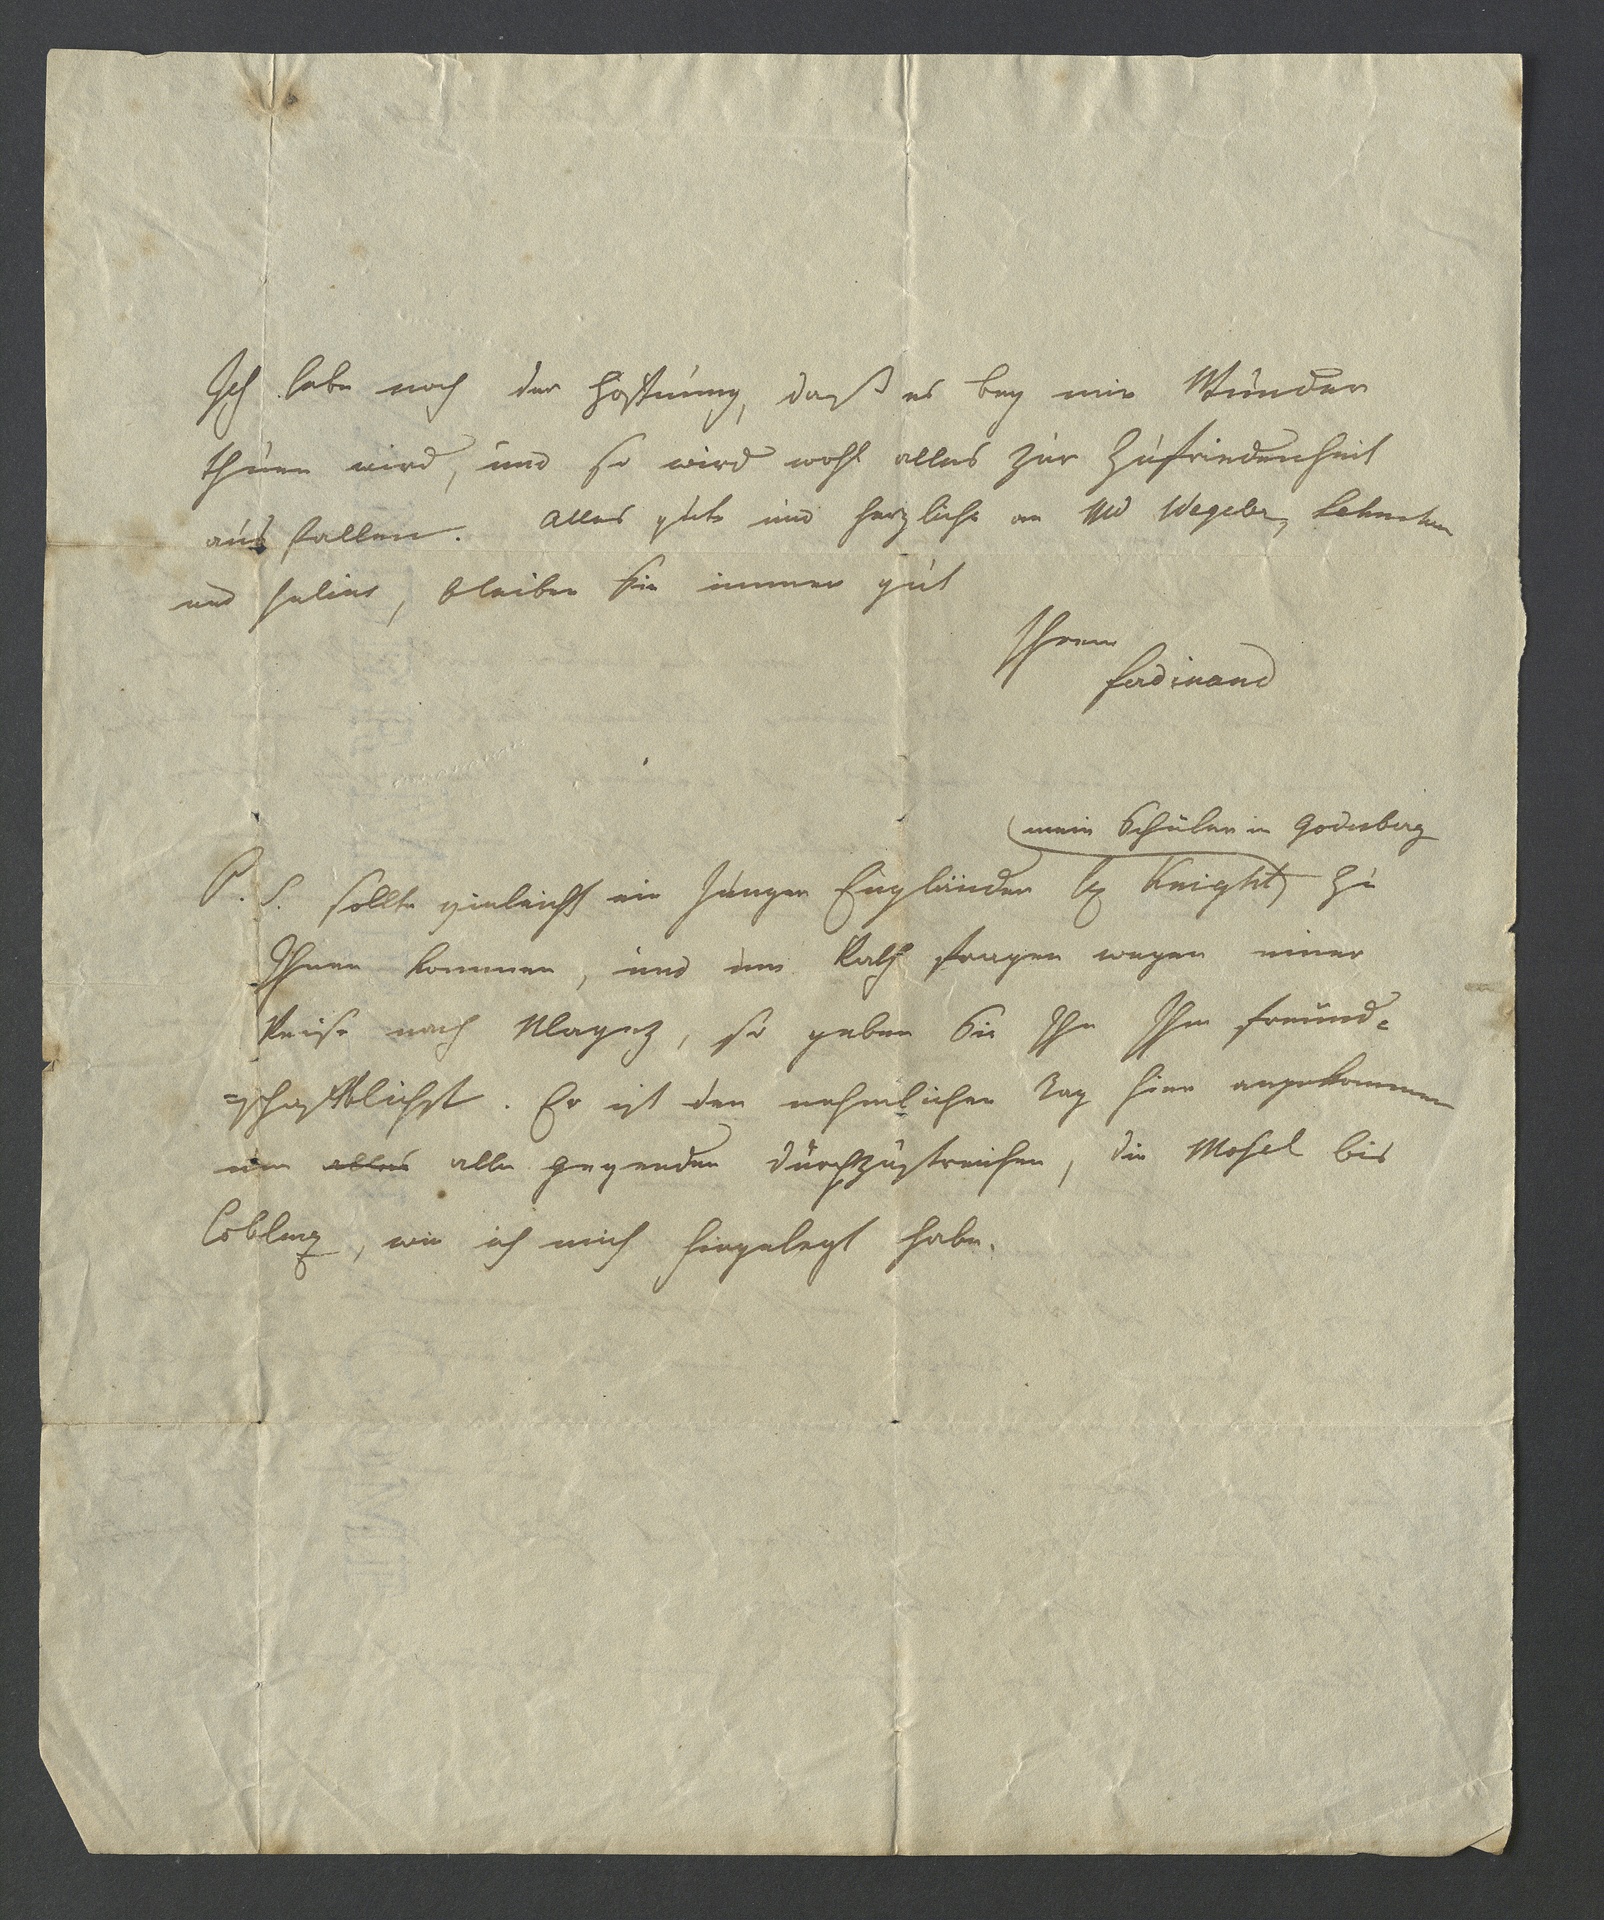 Ich lebe noch der Hoffnung, daß es bey mir Wunder
thuen wird, und so wird wohl alles zur Zufriedenheit
aus fallen. Alles gute und herzliche an Md Wegeler, Lehnchen
und Julius, bleiben Sie immer gut
Ihrem
Ferdinand
(mein Schüler in Godesberg
P. S. sollte vieleicht ein junger Engländer Knight zu
Ihnen kommen, und um Rath fragen wegen einer
Reise nach Maynz, so geben Sie Ihn Ihm freund=
=schaftlichst. Er ist den nehmlichen Tag hier angekommen
um alles alle Gegenden durchzustreichen, die Mosel bis
Coblenz, wie ich mich hingelegt habe.